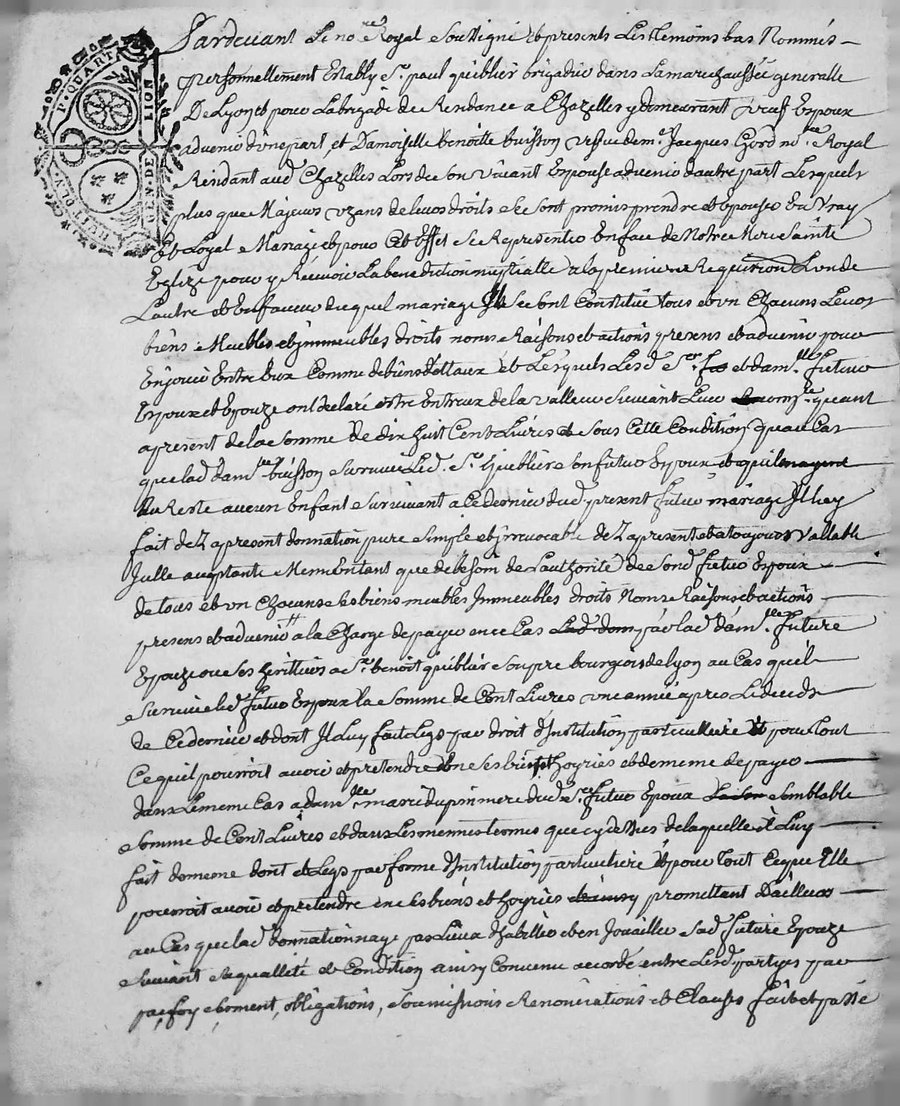 P. QUART
HUIT DEN.
GEN. DE LION
Pardevant Le no.re Royal Soussigné et presents Les temoins bas Nommés
personnellement Estably S.r paul quiblier brigadier dans La marechaussée generalle
De Lyonois pour La brigade de Residance a Chazelles y demeurant veuf Epoux
advenir d'une part, et Damoiselle benoitte buisson veffve de m.e Jacques Chord no.re Royal
Residant aud Chazelles Lors de son vivant Epouse advenir d'autre part Lesquels
plus que Majeurs uzans de leurs droits se sont promis prendre et Epouser En Vray
et Loyal Mariage et pour Cet Effet se Representer En face de Notre Mere Sainte
Eglize pour y Recevoir La benediction nuptialle a la premiere Requisition L'un de
L'autre et En faveur duquel mariage Ils se sont Constitué tous et un Chacuns Leurs
biens Meubles et immeubles droits noms Raisons et actions presens et advenir pour
En jouir Entre Eux Comme de biens dottaux et Lesquels Lesd S.r et dam.lle futurs
Epoux et Epouze ont declaré estre entreux de la valleur suivant Leur quant
a present de la somme de dix huit Cent Livres sous Cette Condition qu'au Cas
que lad dam.lle buisson survive Led. S.r quiblier son futur Epoux et qu'il
du Reste aucun Enfant survivant a Ce dernier dud present futur mariage Il luy
fait dez a present donnation pure simple et irrevocable dez a present et a toujours vallable
Icelle acceptante Memement que de besoin de L'authorité de Sond futur Epoux
de tous et un Chacuns ses biens meubles Immeubles droits Noms Raisons et actions
presens et advenir a la Charge de payer en ce Cas par lad dam.lle future
Epouze ou ses heritiers a S.r benoit quiblier son pere bourgeois de lyon au Cas qu'il
survive led futur Epoux la somme de Cent Livres une année apres Le deceds
de Ce dernier et dont Il Luy fait Legs par droit d'Institution particulliere Et pour tout
Ce qu'il pourroit avoir et pretendre En ses biens et hoyries et de meme de payer
dans Le meme Cas a dam.lle sa mere dud S.r futur Epoux semblable
somme de Cent Livres et dans Les memes termes que cy dessus de laquelle il Luy
fait de meme dont et Legs par forme d'Institution particuliere Et pour tout Ce que Elle
pourroit avoir et pretendre en ses biens et hoyries promettant D'ailleurs
au Cas que lad donnation n'aye pas Lieux d'habiller et en Jouailler sad future Epouze
suivant sa quallité et Condition ainsy Convenu accordé entre Lesd partyes par
foy serment, obligations, soumissions Renonciations et Clauses fait et passé